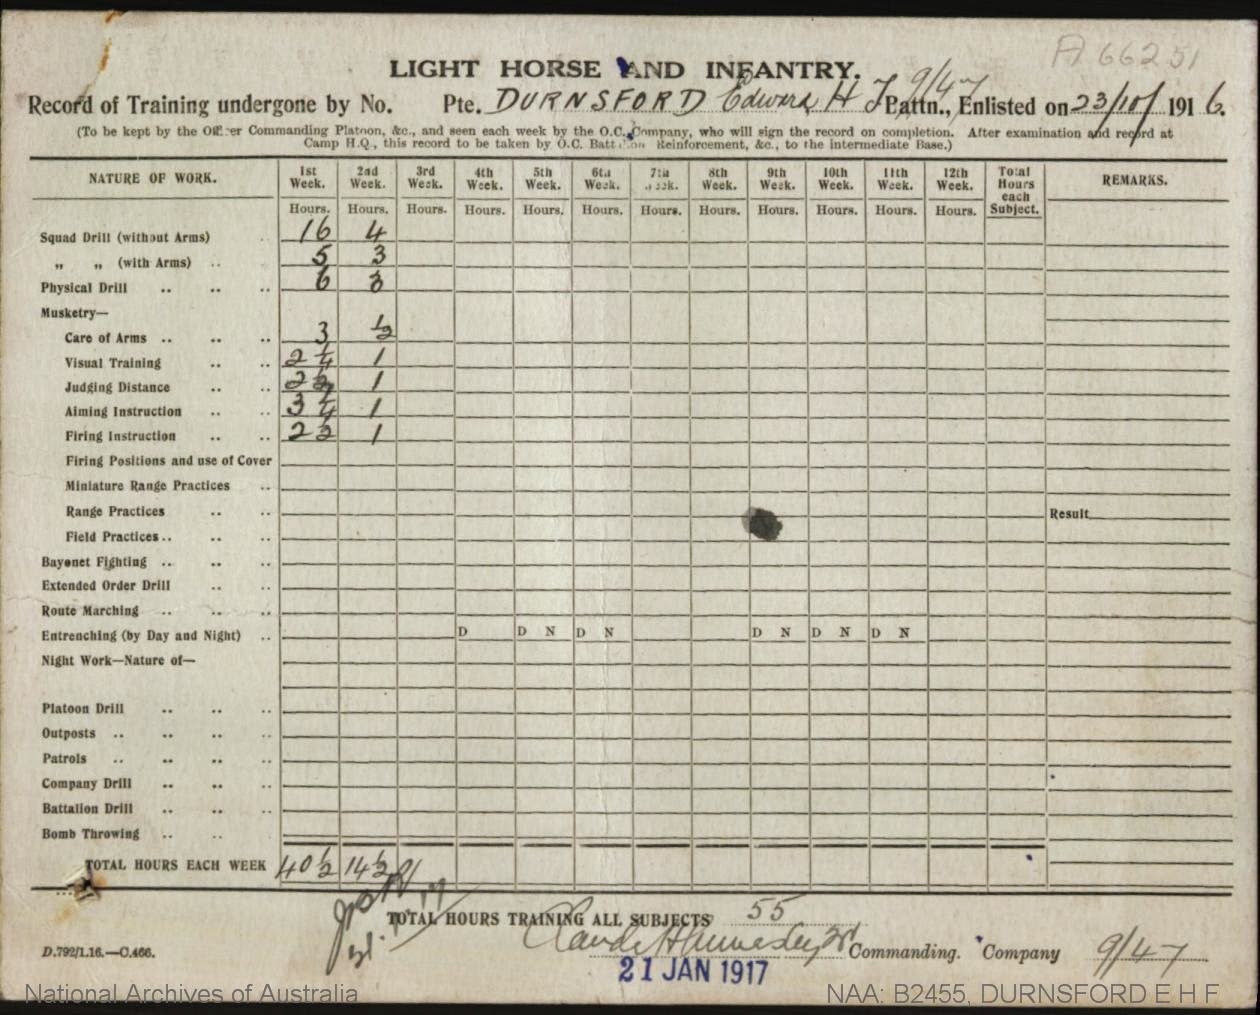 A 66251
LIGHT HORSE AND INFANTRY.
9/47
Record of Training undergone by No. Pte. DURNSFORD Edward H F Battn., Enlisted on 23/10/ 1916.
(To be kept by the Officer Commanding Platoon, &c., and seen each week by the O.C. Company, who will sign the record on completion. After examination and record at
Camp H.Q., this record to be taken by O.C. Battalion Reinforcement, &c., to the intermediate Base.)
NATURE OF WORK. 1st Week. 2nd Week. 3rd Week. 4th Week. 5th Week. 6th Week. 7th Week. 8th Week. 9th Week. 10th Week. 11th Week. 12th Week. Total Hours each Subject. REMARKS.
Hours. Hours. Hours. Hours. Hours. Hours. Hours. Hours. Hours. Hours. Hours. Hours.
Squad Drill (without Arms) .. 16 4
„ „ (with Arms) .. 5 3
Physical Drill .. .. .. 6 3
Musketry—
Care of Arms .. .. .. 3 ½
Visual Training .. .. 2 ¼ 1
Judging Distance .. .. 2 ½ 1
Aiming Instruction .. .. 3 ¼ 1
Firing Instruction .. .. 2 ½ 1
Firing Positions and use of Cover
Miniature Range Practices ..
Range Practices .. .. Result
Field Practices .. .. ..
Bayonet Fighting .. .. ..
Extended Order Drill .. ..
Route Marching .. .. ..
Entrenching (by Day and Night) .. D D N D N D N D N D N
Night Work—Nature of—
Platoon Drill .. .. ..
Outposts .. .. .. ..
Patrols .. .. .. ..
Company Drill .. .. ..
Battalion Drill .. .. ..
Bomb Throwing .. ..
TOTAL HOURS EACH WEEK 40 ½ 14 ½
TOTAL HOURS TRAINING ALL SUBJECTS 55
D.792/1.16.—C.466. Commanding. Company 9/47
21 JAN 1917
National Archives of Australia NAA: B2455, DURNSFORD E H F